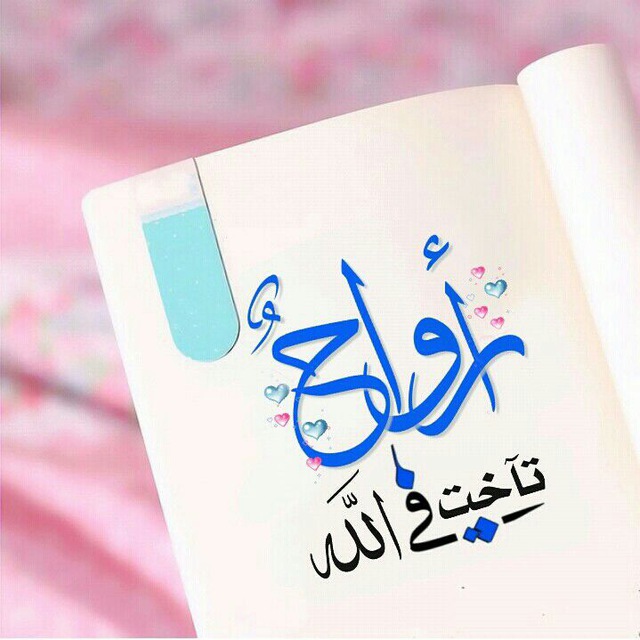 أرواحٌ
تآخت في الله